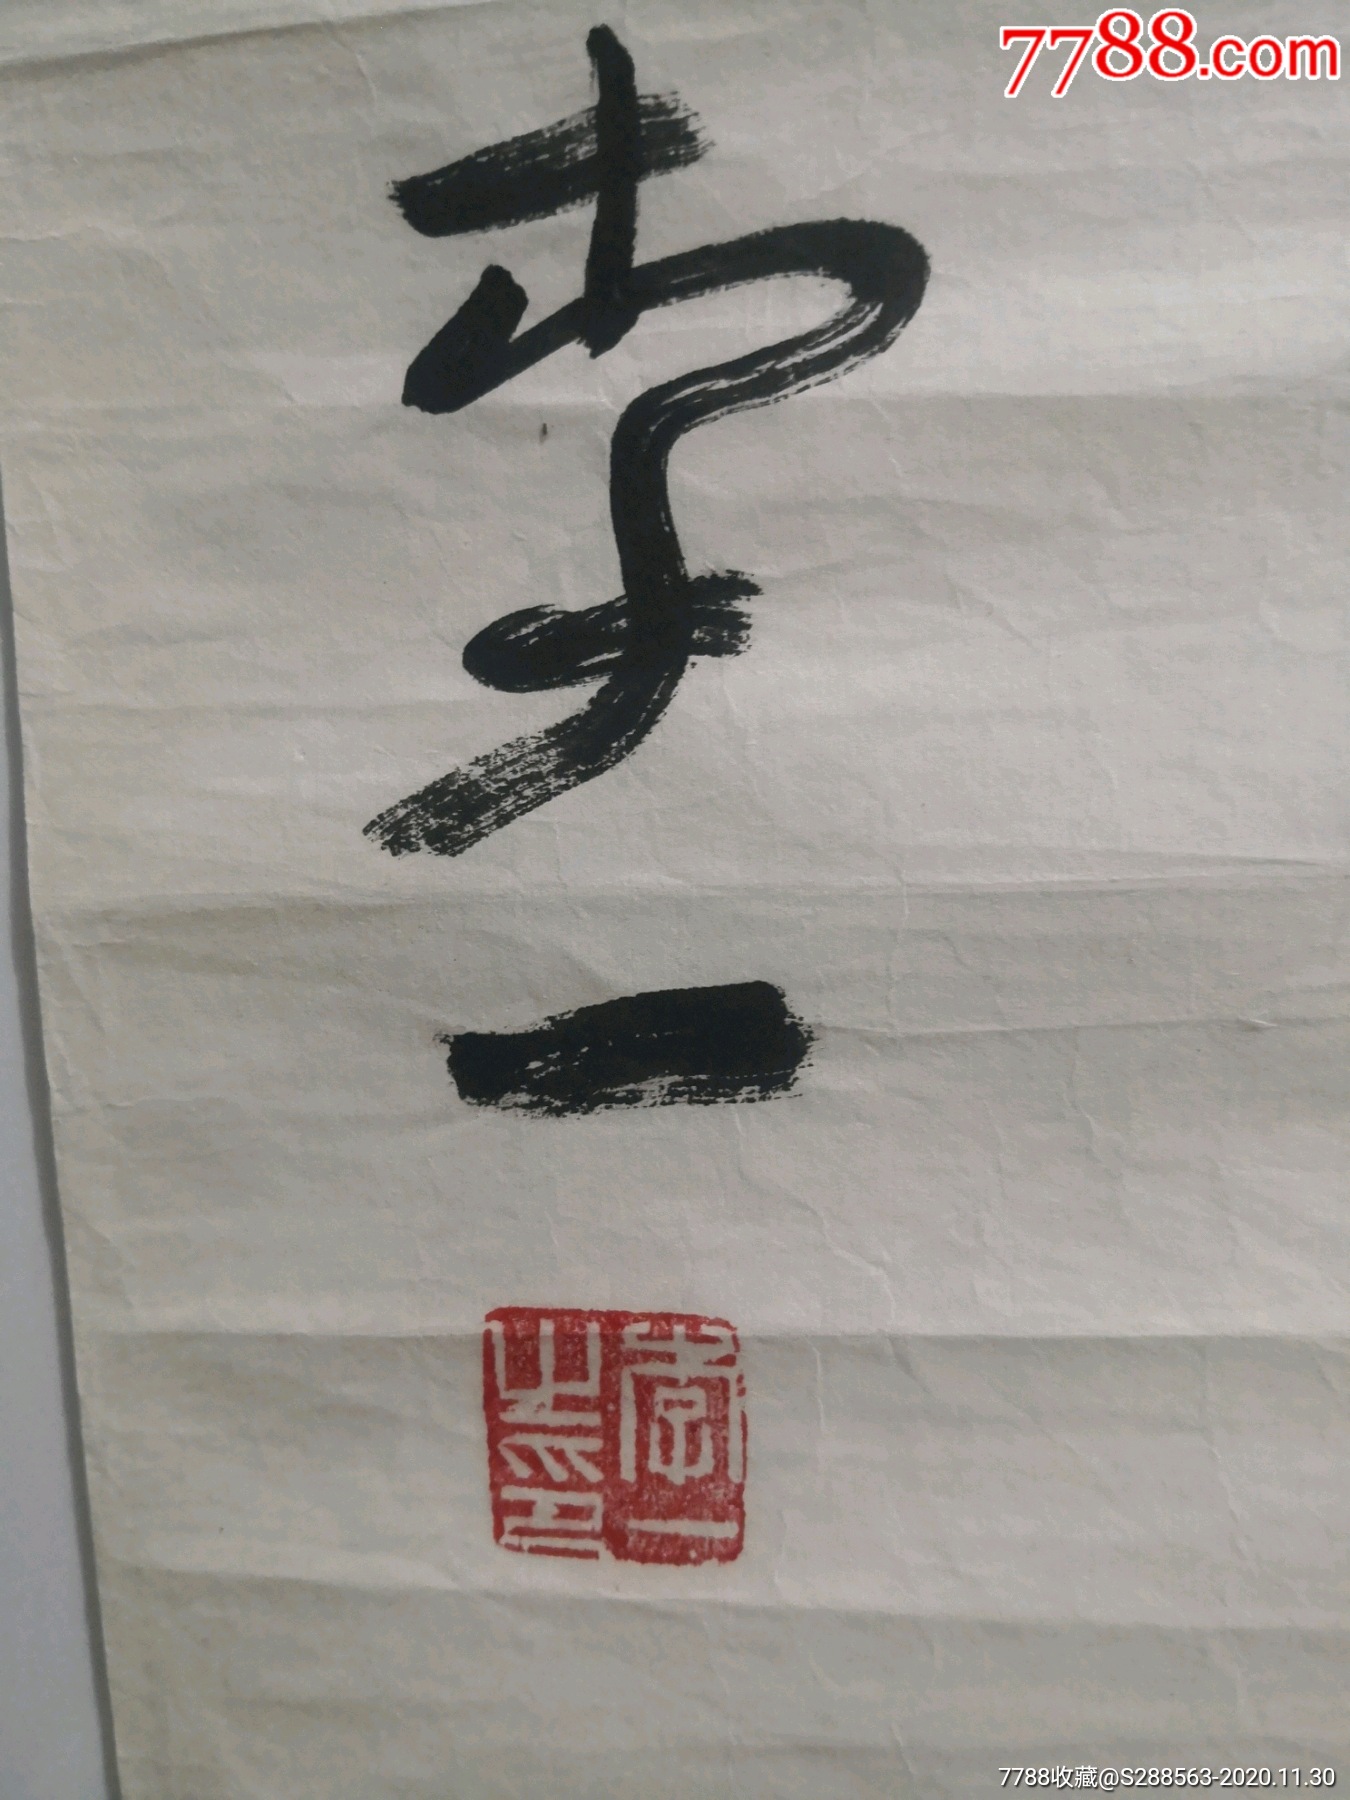 7788.com
一
一
之印
7788收藏@S288563-2020.11.30